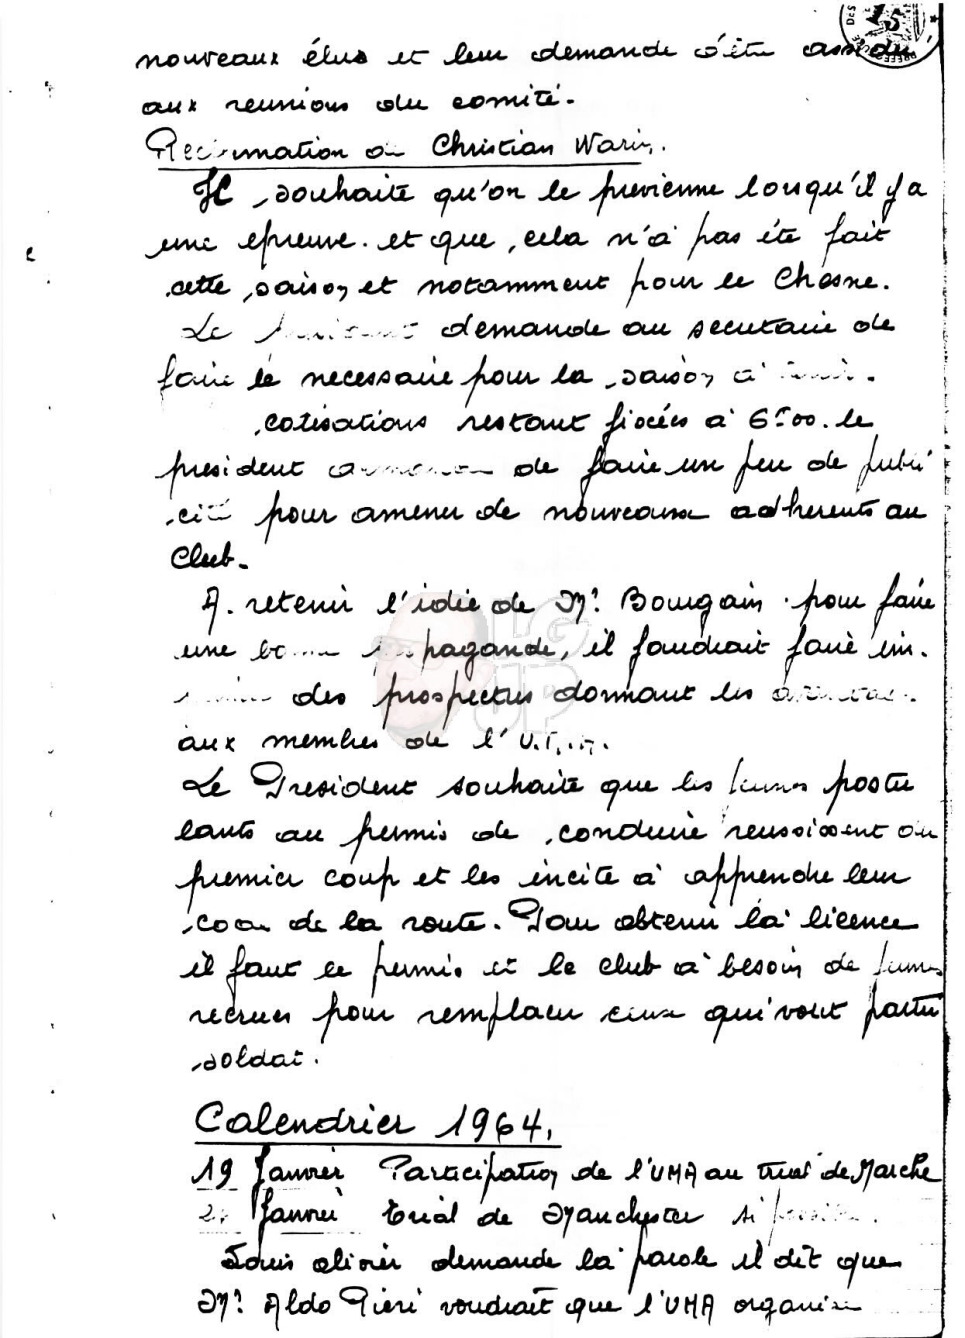 15
nouveaux élus et leur demande d'être assidu
aux reunions du comité.
Reclamation de Christian Warin.
Il souhaite qu'on le previenne lorsqu'il y a
une epreuve. et que, cela n'a pas été fait
cette saison et notamment pour le Chesne.
Le demande au secretaire de
faire le necessaire pour la saison à
cotisations restant fixées à 6F00. le
president de faire un peu de publi
cité pour amener de nouveaux adherents au
Club.
A. retenir l'idée de Mr. Bourgain. pour faire
une bonne propagande, il faudrait faire im.
des prospectus donnant les
aux membres de l'
Le President souhaite que les jeunes postu
lants au permis de conduire reussissent du
premier coup et les incite à apprendre leur
code de la route. Pour obtenir la licence
il faut le permis et le club à besoin de jeunes
recrues pour remplacer ceux qui vont partir
soldat.
Calendrier 1964.
19 Janvier Participation de l'UMA au trial de Marche
Janvier trial de Manchester si possible.
Louis olivier demande la parole il dit que
Mr. Aldo Pieri voudrait que l'UMA organise
LG
UP